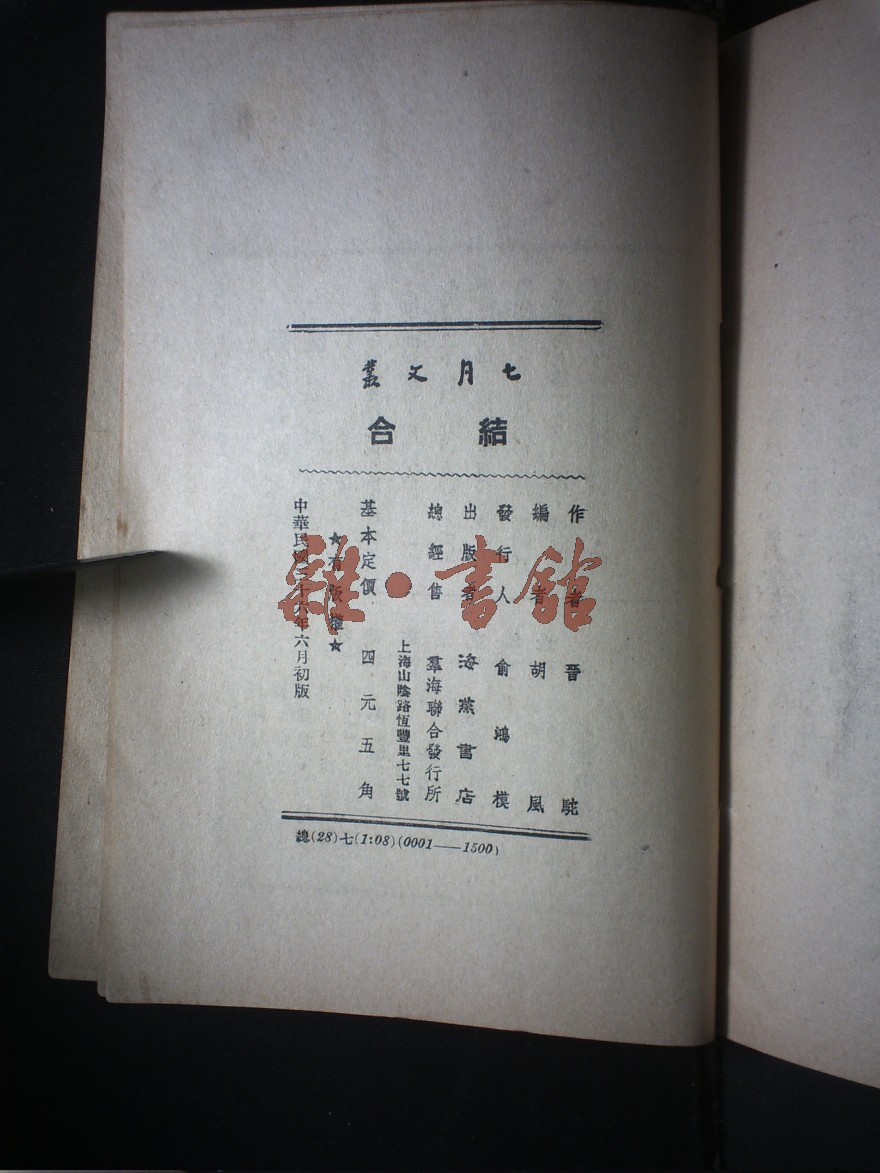 七月文叢
結合
作者 晉駝
編者 胡風
發行人 俞鴻模
出版者 海燕書店
總經售 羣海聯合發行所
上海山陰路恆豐里七七號
基本定價 四元五角
★有版權★
中華民國三十六年六月初版
總(28)七(1:08)(0001——1500)
雜·書館